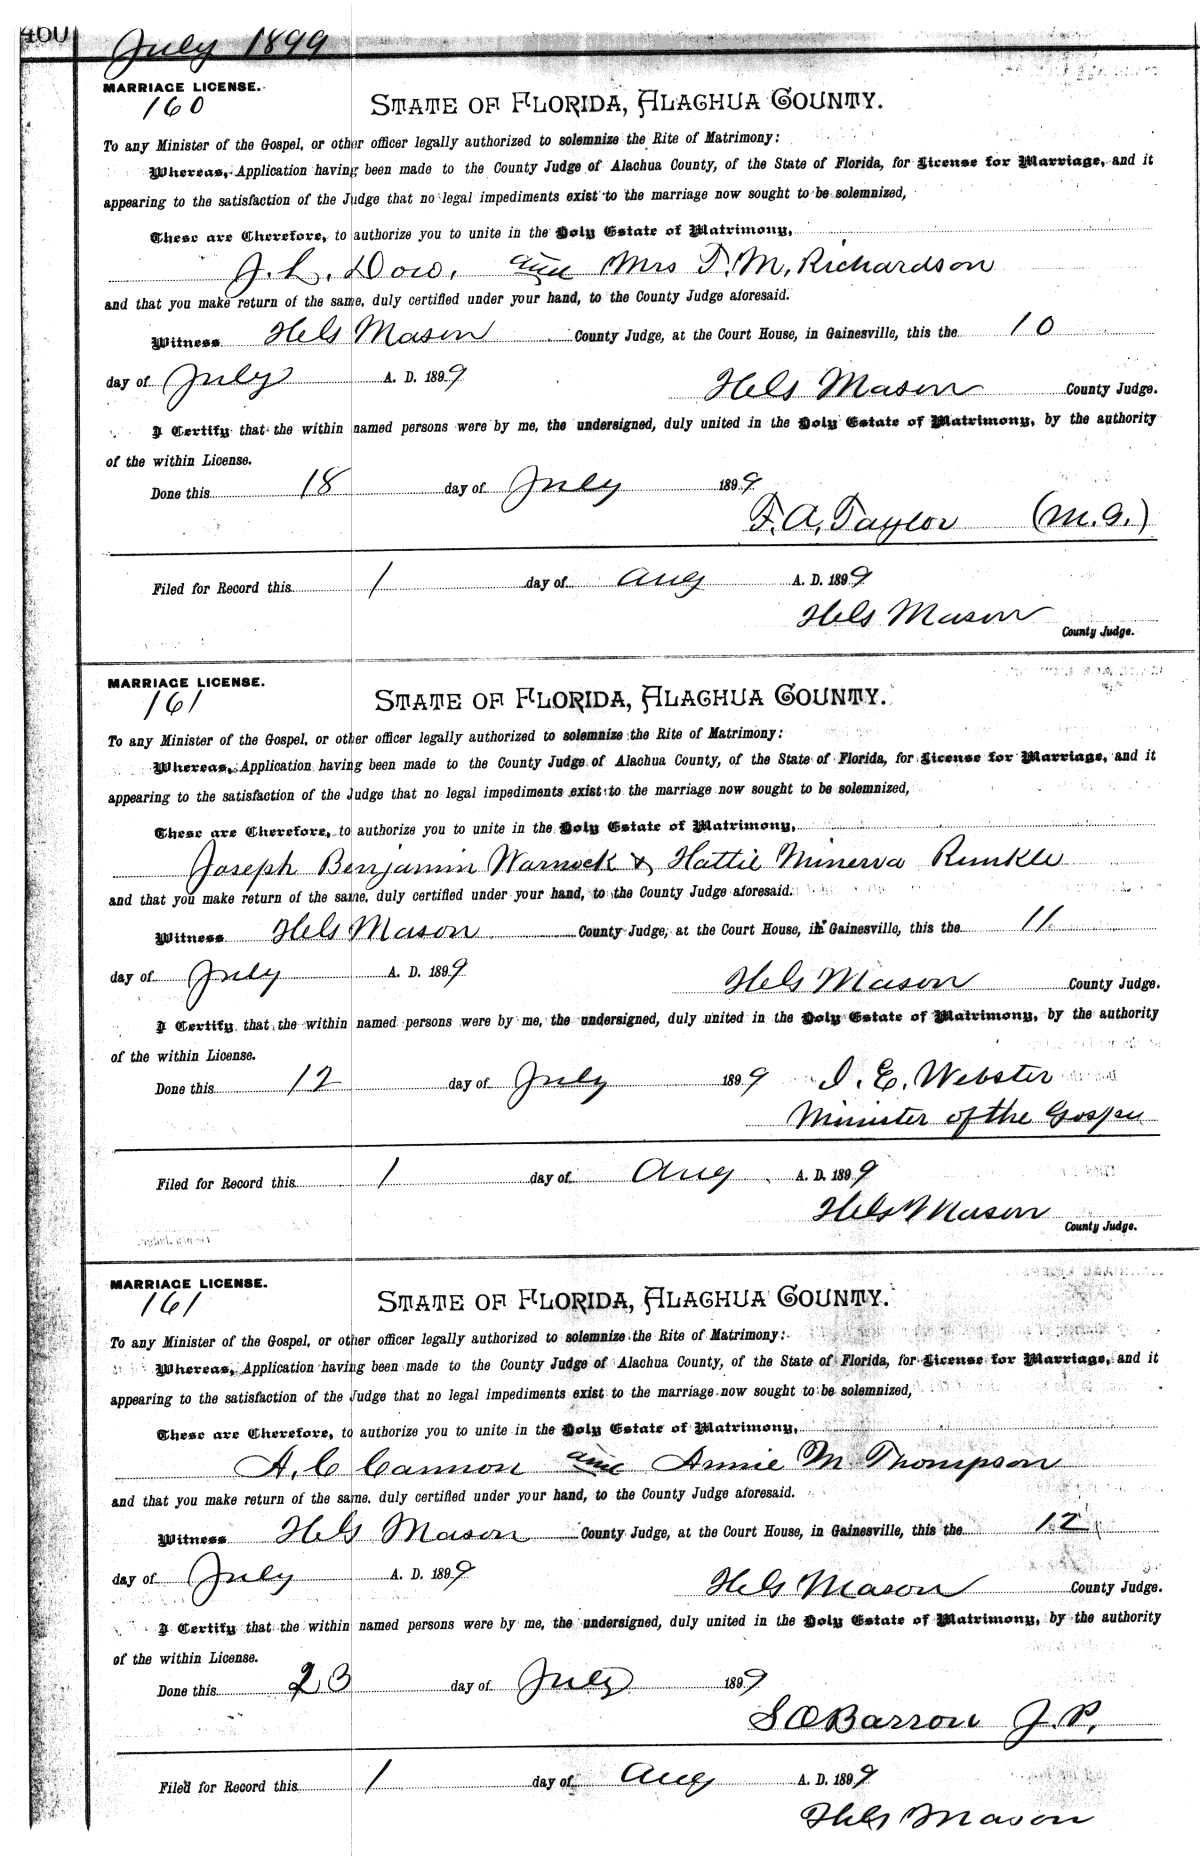 460
July 1899
MARRIAGE LICENSE.
160
STATE OF FLORIDA, ALACHUA COUNTY.
To any Minister of the Gospel, or other officer legally authorized to solemnize the Rite of Matrimony:
Whereas, Application having been made to the County Judge of Alachua County, of the State of Florida, for License for Marriage, and it
appearing to the satisfaction of the Judge that no legal impediments exist to the marriage now sought to be solemnized,
These are Therefore, to authorize you to unite in the Holy Estate of Matrimony,
J. L. Dow. and Mrs T. M. Richardson
and that you make return of the same, duly certified under your hand, to the County Judge aforesaid.
Witness Hels Mason County Judge, at the Court House, in Gainesville, this the 10
day of July A. D. 1899 Hels Mason County Judge.
I Certify that the within named persons were by me, the undersigned, duly united in the Holy Estate of Matrimony, by the authority
of the within License.
Done this 18 day of July 1899
F. A. Taylor (M.G.)
Filed for Record this 1 day of Aug A. D. 1899
Hels Mason
County Judge.
MARRIAGE LICENSE.
161
STATE OF FLORIDA, ALACHUA COUNTY.
To any Minister of the Gospel, or other officer legally authorized to solemnize the Rite of Matrimony:
Whereas, Application having been made to the County Judge of Alachua County, of the State of Florida, for License for Marriage, and it
appearing to the satisfaction of the Judge that no legal impediments exist to the marriage now sought to be solemnized,
These are Therefore, to authorize you to unite in the Holy Estate of Matrimony,
Joseph Benjamin Warnock & Hattie Minerva Runkle
and that you make return of the same, duly certified under your hand, to the County Judge aforesaid.
Witness Hels Mason County Judge, at the Court House, in Gainesville, this the 11
day of July A. D. 1899 Hels Mason County Judge.
I Certify that the within named persons were by me, the undersigned, duly united in the Holy Estate of Matrimony, by the authority
of the within License.
Done this 12 day of July 1899 I. E. Webster
Minister of the Gospel
Filed for Record this 1 day of Aug A. D. 1899
Hels Mason
County Judge.
MARRIAGE LICENSE.
161
STATE OF FLORIDA, ALACHUA COUNTY.
To any Minister of the Gospel, or other officer legally authorized to solemnize the Rite of Matrimony:
Whereas, Application having been made to the County Judge of Alachua County, of the State of Florida, for License for Marriage, and it
appearing to the satisfaction of the Judge that no legal impediments exist to the marriage now sought to be solemnized,
These are Therefore, to authorize you to unite in the Holy Estate of Matrimony,
A. C Cannon and Annie M Thompson
and that you make return of the same, duly certified under your hand, to the County Judge aforesaid.
Witness Hels Mason County Judge, at the Court House, in Gainesville, this the 12
day of July A. D. 1899 Hels Mason County Judge.
I Certify that the within named persons were by me, the undersigned, duly united in the Holy Estate of Matrimony, by the authority
of the within License.
Done this 23 day of July 1899
S O Barron J. P.
Filed for Record this 1 day of Aug A. D. 1899
Hels Mason